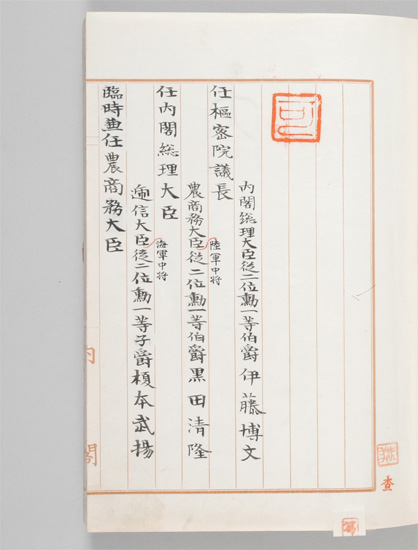 可
内閣総理大臣従二位勳一等伯爵伊藤博文
任枢密院議長
陸軍中将
農商務大臣従二位勳一等伯爵黒田清隆
任内閣総理大臣
海軍中将
逓信大臣従二位勳一等子爵榎本武揚
臨時兼任農商務大臣
内閣
査